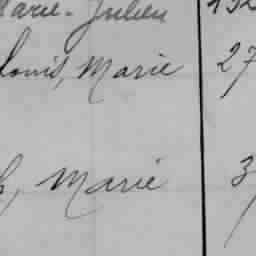 Marie-Julien 192
Louis, Marie 27
h, Marie 3